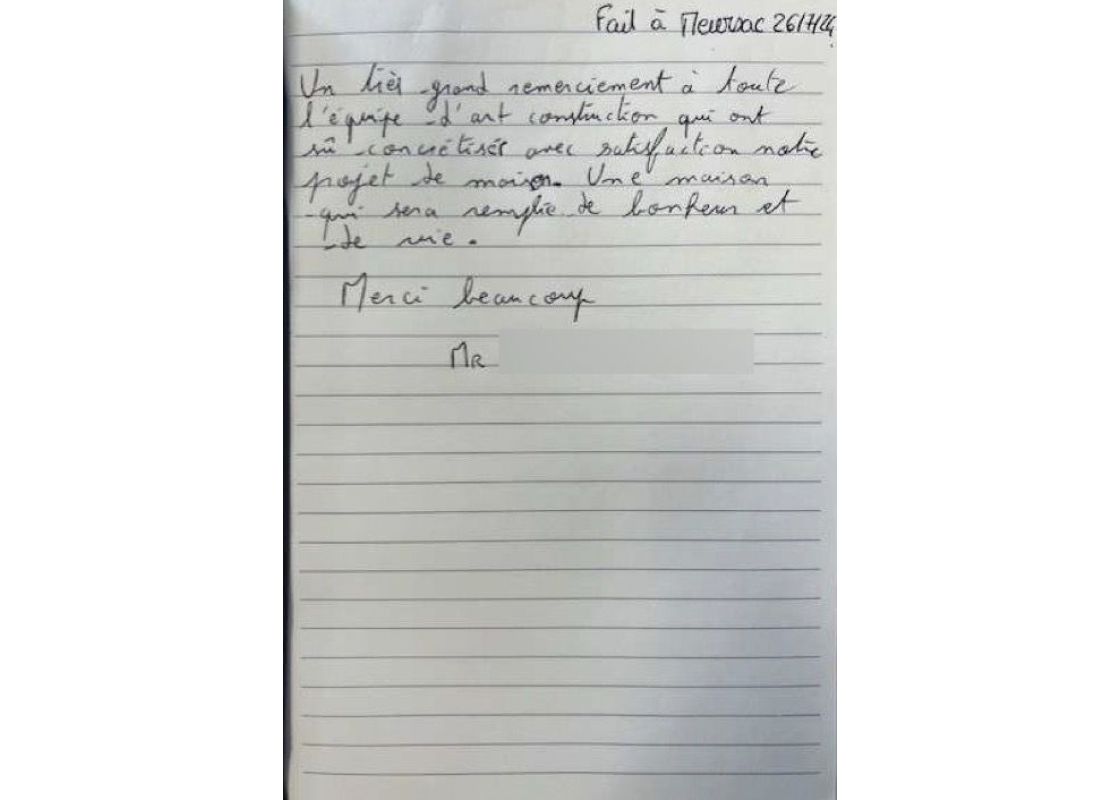 Fait à Meursac 26/7/24
Un très grand remerciement à toute
l'équipe d'art construction qui ont
sû concrétisés avec satisfaction notre
projet de maison. Une maison
qui sera remplie de bonheur et
de vie.
Merci beaucoup
Mr